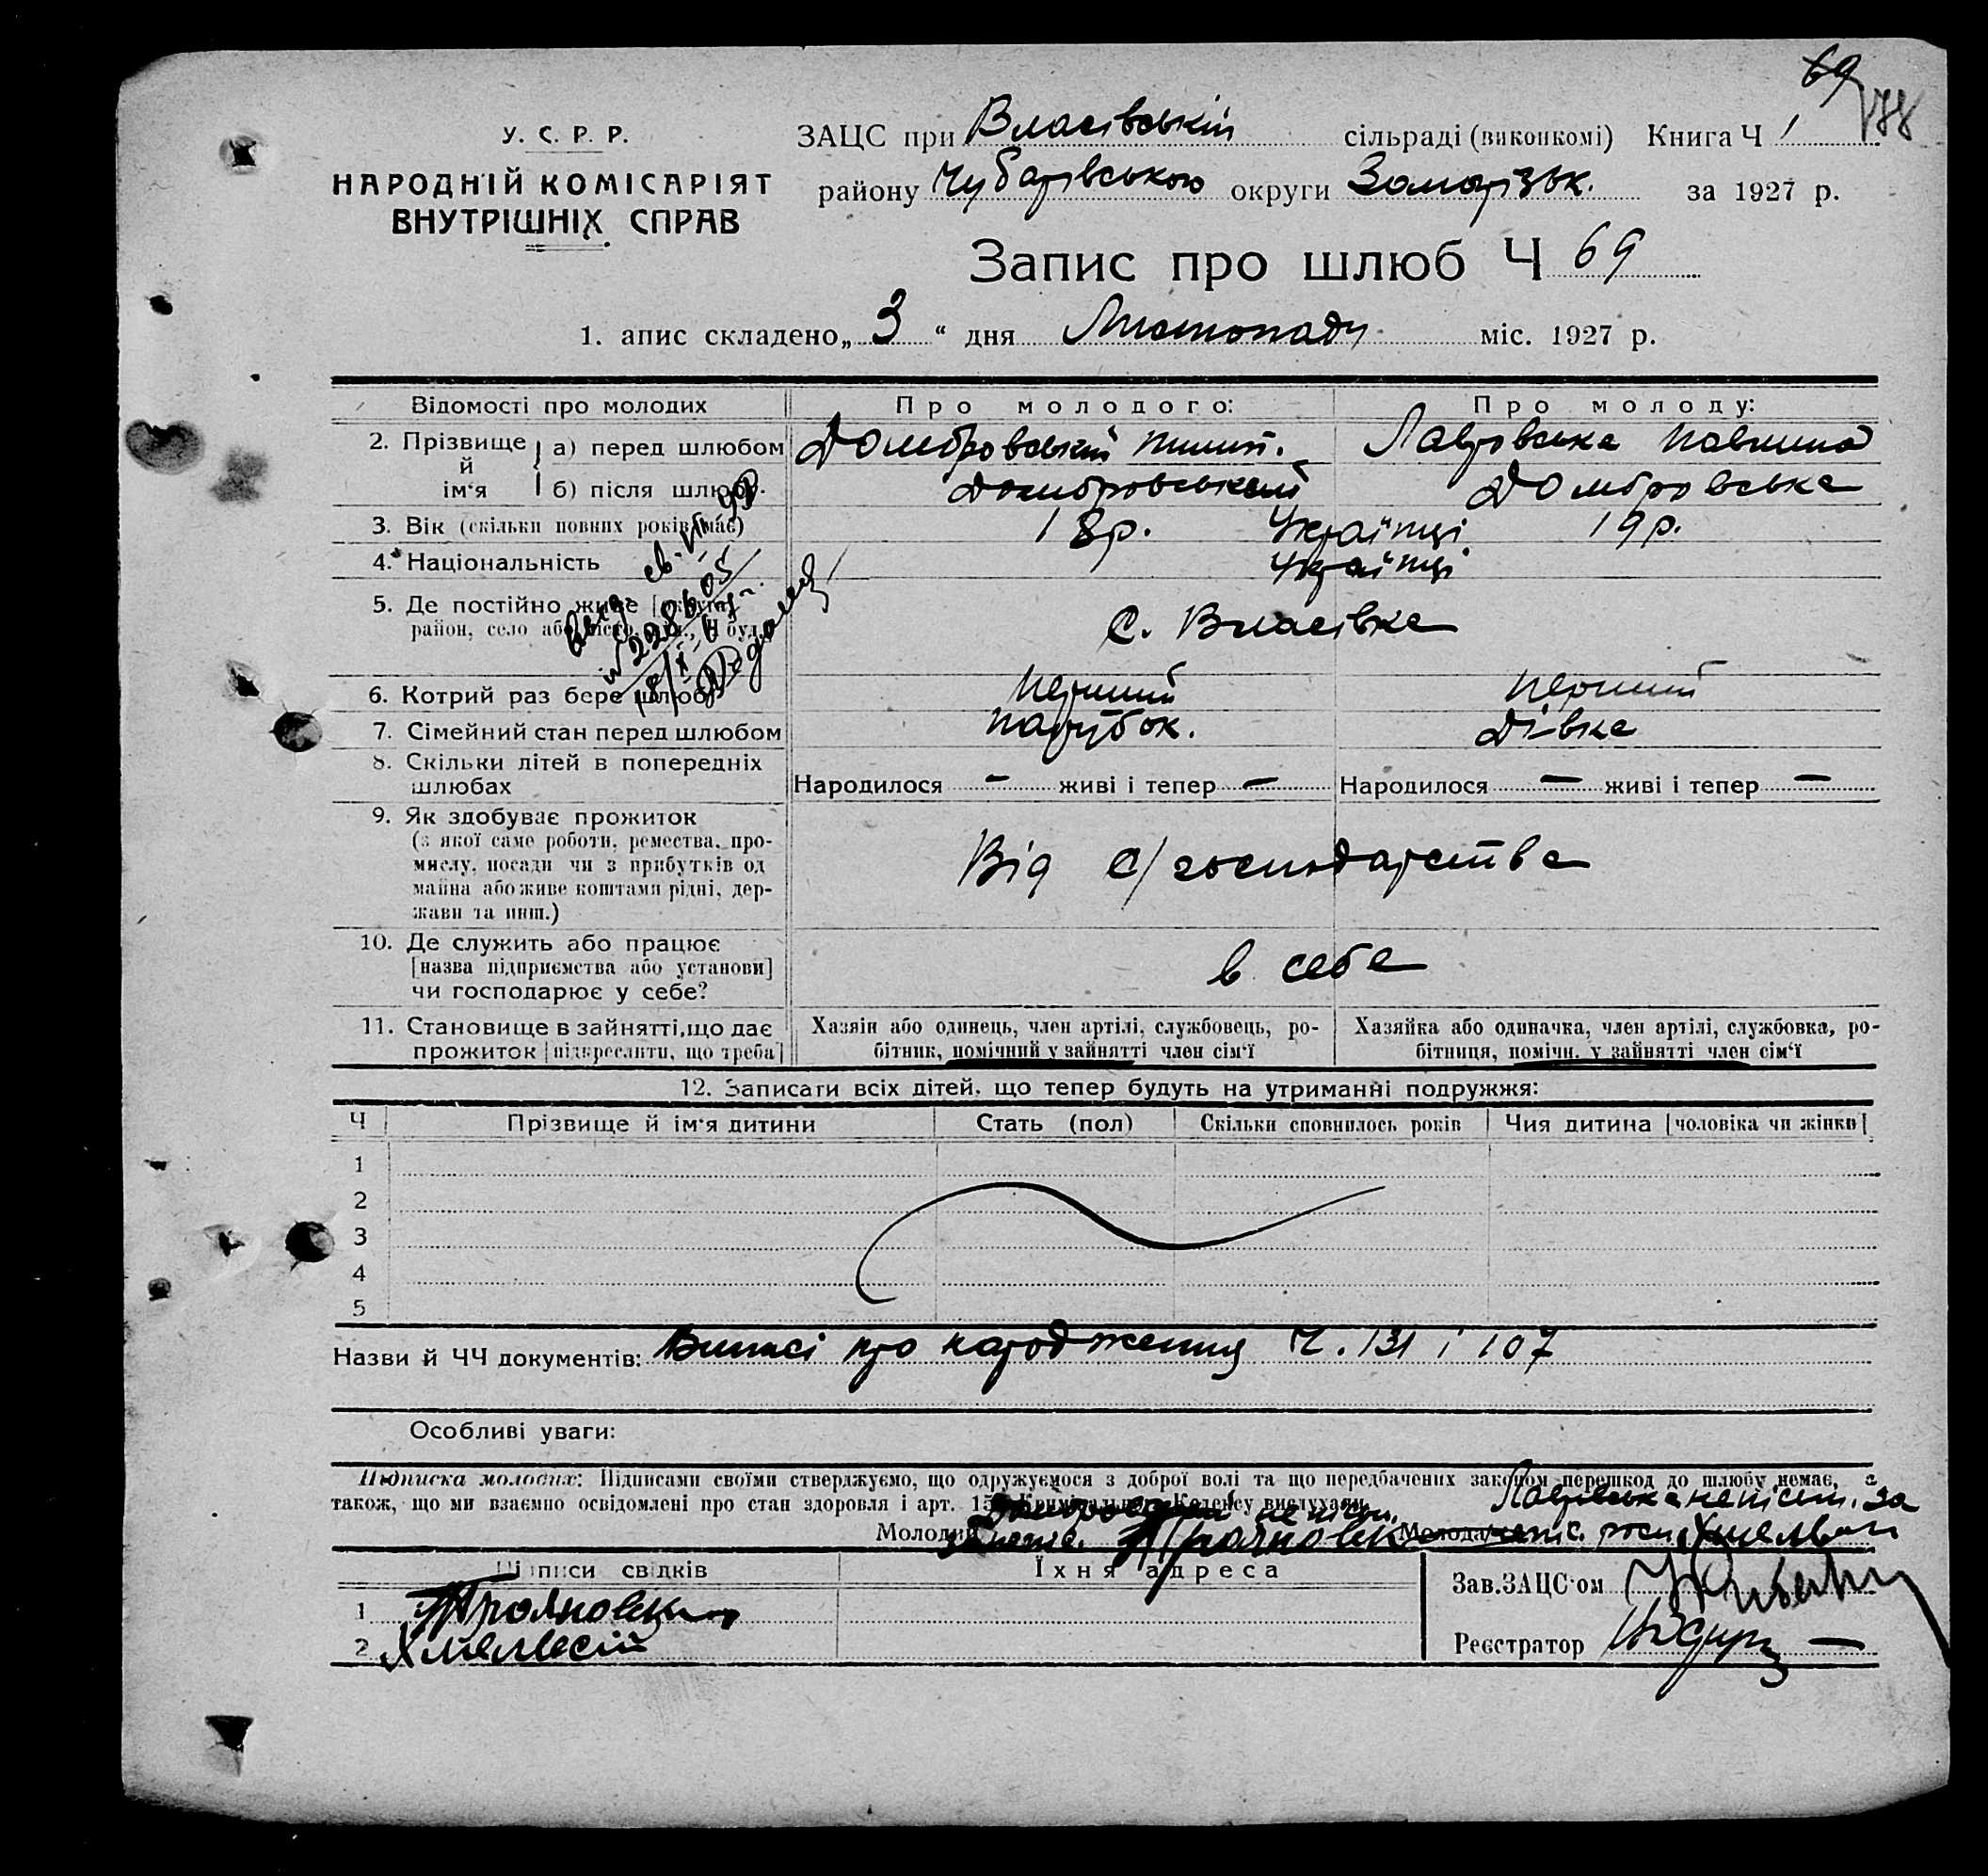 69
У. С. Р. Р.
НАРОДНІЙ КОМІСАРІЯТ
ВНУТРІШНІХ СПРАВ
ЗАЦС при Власівській сільраді (виконкомі) Книга Ч 1
району Чубарівською округи Запорізьк. за 1927 р.
Запис про шлюб Ч 69
1. апис складено „ 3 “ дня Листопаду міс. 1927 р.
Відомості про молодих Про молодого: Про молоду:
2. Прізвище й ім‘я а) перед шлюбом Домбровський Пилип. Лавровська Павлина
б) після шлюбу. Домбровський Домбровська
3. Вік (скільки повних років має) 18р. Українці 19р.
4. Національність Українці
5. Де постійно живе [округа,
район, село або місто, вул., Ч буд.
с. Власівка
№ 228605
6. Котрий раз бере шлюб Перший Перший
7. Сімейний стан перед шлюбом парубок. дівка
8. Скільки літей в попередніх
шлюбах Народилося — живі і тепер — Народилося — живі і тепер —
9. Як здобуває прожиток
(з якої саме роботи, ремества, про-
мислу, посади чи з прибутків од
майна або живе коштами рідні, дер-
жави та инш.)
Від с/господарства
10. Де служить або працює
[назва підприємства або установи]
чи господарює у себе?
в себе
11. Становище в зайнятті,що дає
прожиток [підкреслити, що треба]
Хазяін або одинець, член артілі, службовець, ро-
бітник, помічний у зайнятті член сім‘ї
Хазяйка або одиначка, член артілі, службовка, ро-
бітниця, помічн. у зайнятті член сім‘ї
12. Записати всіх дітей. що тепер будуть на утриманні подружжя:
Ч Прізвище й ім‘я дитини Стать (пол) Скільки сповнилось років Чия дитина [чоловіка чи жінки]
1
2
3
4
5
Назви й ЧЧ документів: Виписі про народження Ч. 131 і 107
Особливі уваги:
Підписка молодих: Підписами своїми стверджуємо, що одружуємося з доброї волі та що передбачених законом перешкод до шлюбу немає, а
також, що ми взаємно освідомлені про стан здоровля і арт. 15 Кримінального Кодексу вислухали.
Лавровська непісьм. за
Молодий Молода
Підписи свідків Їхня адреса
Зав.ЗАЦС‘ом
1
2
Реєстратор